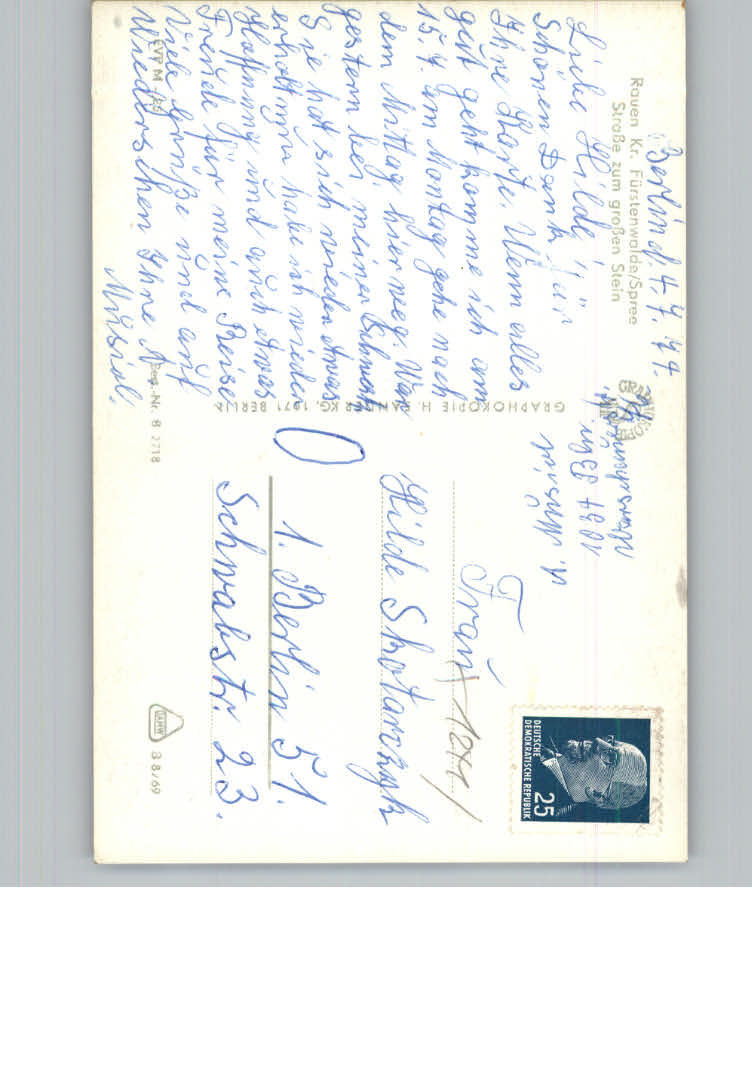 Rauen Kr. Fürstenwalde/Spree
Straße zum großen Stein
Berlin d. 4. 7. 77.
Liebe Hilde!
Schönen Dank für
Ihre Karte. Wenn alles
gut geht komme ich am
15 7. am Montag gehe nach
dem Mittag hier weg. War
gestern bei meiner
Sie hat sich wieder etwas
erholt nun habe ich wieder
Hoffnung und auch etwas
Freude für meine Reise
Viele Grüße und auf
Wiedersehen Ihre A
Musial.
EVP M -,25
Bes.-Nr. B 2718
GRAPHOKOPIE H. SANDER KG, 1971 BERLIN
A. Musial
Frau
Hilde Skotarczyk
1. Berlin 51.
Schwabstr. 23.
DEUTSCHE
DEMOKRATISCHE REPUBLIK
25
B 8/69